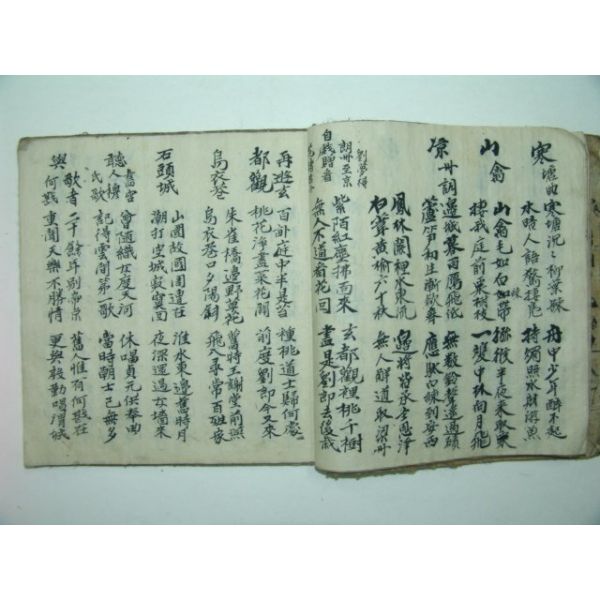 寒塘曲 寒塘沉々柳葉疎 舟中少年醉不起
水暗人語驚棲鳧 持燭照水射游魚
山禽 山禽毛如白如 獼猴半夜來取栗
棲我庭前栗樹枝 一雙中林向月飛
凉州詞 邊城暮雨鴈飛低 無數鈴聲遙過磧
蘆笋初生漸欲齊 應馱白練到安西
鳳林關裡水東流 邊將皆承主恩澤
白草黃榆六十秋 無人解道取凉州
劉夢得
自朗州至京
戱贈看
花諸君
紫陌紅塵拂面來 玄都觀裡桃千樹
無人不道看花回 盡是劉郎去後栽
再遊玄都觀 百訃庭中半是苔 種桃道士歸何處
桃花淨盡菜花開 前度劉郎今又來
烏衣巷 朱雀橋邊野草花 舊時王謝堂前燕
烏衣巷口夕陽斜 飛入尋常百姓家
石頭城 山圍故國周遭在 淮水東邊舊時月
潮打空城寂寞回 夜深還過女墻來
聽舊宮人穆氏歌 曾隨織女度天河 休唱貞元供奉曲
記得雲間第一歌 當時朝士已無多
與歌者何戡 二十餘年別帝京 舊人惟有何戡在
重聞天樂不勝情 更與殷勤唱渭城